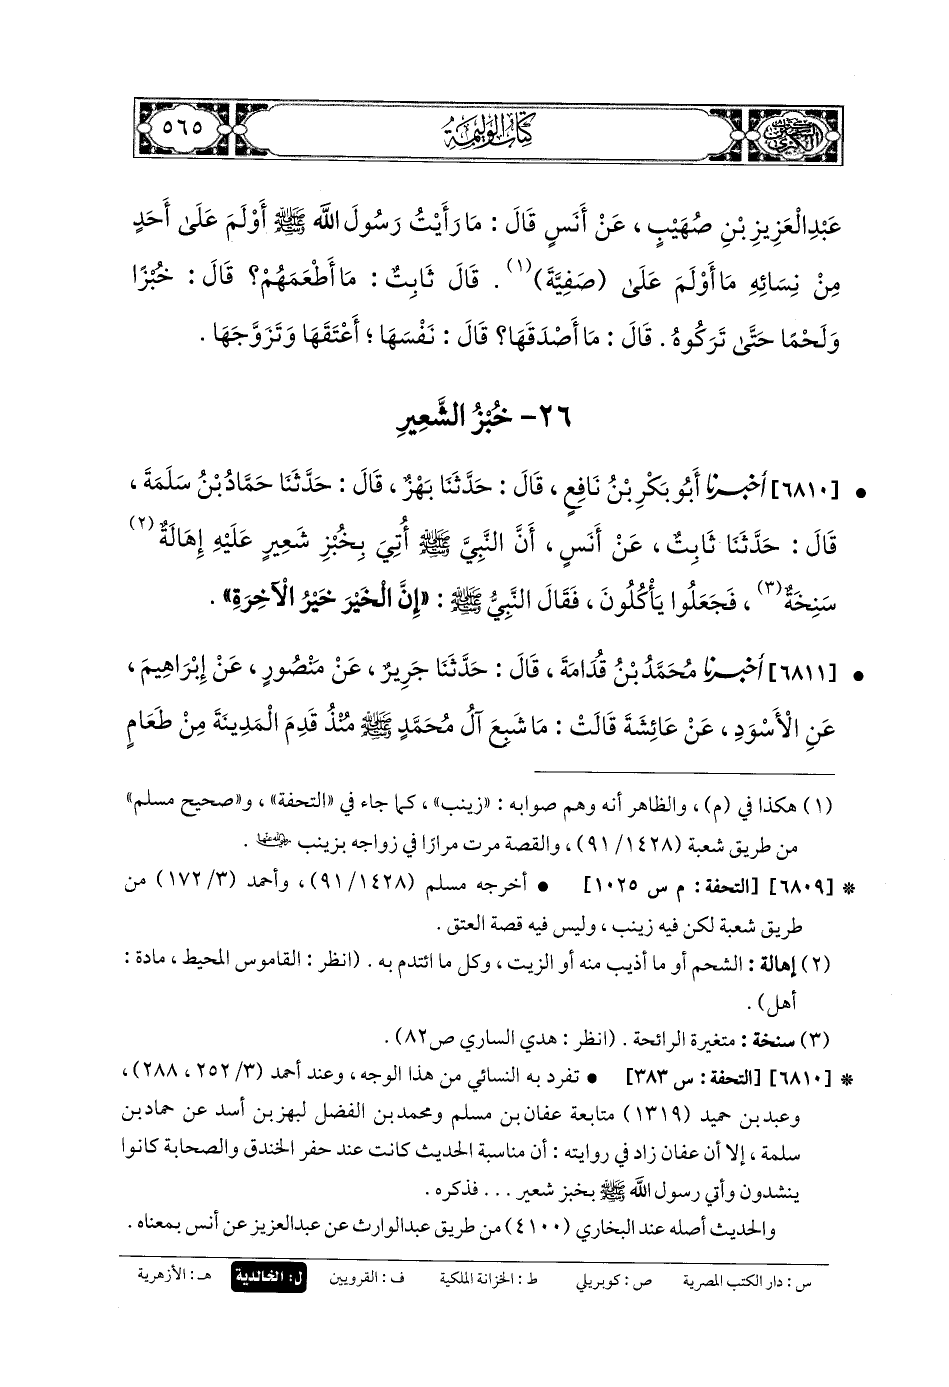 ٥٦٥
كتاب الوليمة
السنن الكبرى
عَبْدِالْعَزِيزِ بْنِ صُهَيْبٍ، عَنْ أَنَسٍ قَالَ: مَا رَأَيْتُ رَسُولَ اللَّه ﷺ أَوْلَمَ عَلَىٰ أَحَدٍ
مِنْ نِسَائِهِ مَا أَوْلَمَ عَلَىٰ (صَفِيَّةَ)(١). قَالَ ثَابِتٌ: مَا أَطْعَمَهُمْ؟ قَالَ: خُبْزًا
وَلَحْمًا حَتَّىٰ تَرَكُوهُ. قَالَ: مَا أَصْدَقَهَا؟ قَالَ: نَفْسَهَا؛ أَعْتَقَهَا وَتَزَوَّجَهَا.
٢٦- خُبْزُ الشَّعِيرِ
• [٦٨١٠] أخبرنا أَبُو بَكْرِ بْنُ نَافِعٍ، قَالَ: حَدَّثَنَا بَهْزٌ، قَالَ: حَدَّثَنَا حَمَّادُ بْنُ سَلَمَةَ،
قَالَ: حَدَّثَنَا ثَابِتٌ، عَنْ أَنَسٍ، أَنَّ النَّبِيَّ ﷺ أُتِيَ بِخُبْزِ شَعِيرٍ عَلَيْهِ إِهَالَةٌ(٢)
سَنِخَةٌ(٣)، فَجَعَلُوا يَأْكُلُونَ، فَقَالَ النَّبِيُّ ﷺ: «إِنَّ الْخَيْرَ خَيْرُ الْآخِرَةِ».
• [٦٨١١] أخبرنا مُحَمَّدُ بْنُ قُدَامَةَ، قَالَ: حَدَّثَنَا جَرِيرٌ، عَنْ مَنْصُورٍ، عَنْ إِبْرَاهِيمَ،
عَنِ الْأَسْوَدِ، عَنْ عَائِشَةَ قَالَتْ: مَا شَبِعَ آلُ مُحَمَّدٍ ﷺ مُنْذُ قَدِمَ الْمَدِينَةَ مِنْ طَعَامٍ
(١) هكذا في (م)، والظاهر أنه وهم صوابه: «زينب»، كما جاء في «التحفة»، و«صحيح مسلم»
من طريق شعبة (١٤٢٨/ ٩١)، والقصة مرت مرارًا في زواجه بزينب رضي الله عنها.
* [٦٨٠٩] [التحفة: م س ١٠٢٥] • أخرجه مسلم (١٤٢٨/ ٩١)، وأحمد (٣/ ١٧٢) من
طريق شعبة لكن فيه زينب، وليس فيه قصة العتق.
(٢) إهالة: الشحم أو ما أذيب منه أو الزيت، وكل ما ائتدم به. (انظر: القاموس المحيط، مادة:
أهل).
(٣) سنخة: متغيرة الرائحة. (انظر: هدي الساري ص٨٢).
* [٦٨١٠] [التحفة: س ٣٨٣] • تفرد به النسائي من هذا الوجه، وعند أحمد (٣/ ٢٥٢، ٢٨٨)،
وعبد بن حميد (١٣١٩) متابعة عفان بن مسلم ومحمد بن الفضل لبهز بن أسد عن حماد بن
سلمة، إلا أن عفان زاد في روايته: أن مناسبة الحديث كانت عند حفر الخندق والصحابة كانوا
ينشدون وأتي رسول اللَّه ﷺ بخبز شعير... فذكره.
والحديث أصله عند البخاري (٤١٠٠) من طريق عبدالوارث عن عبدالعزيز عن أنس بمعناه.
س: دار الكتب المصرية ص: كوبريلي ط: الخزانة الملكية ف: القرويين ل: الخالدية هـ: الأزهرية